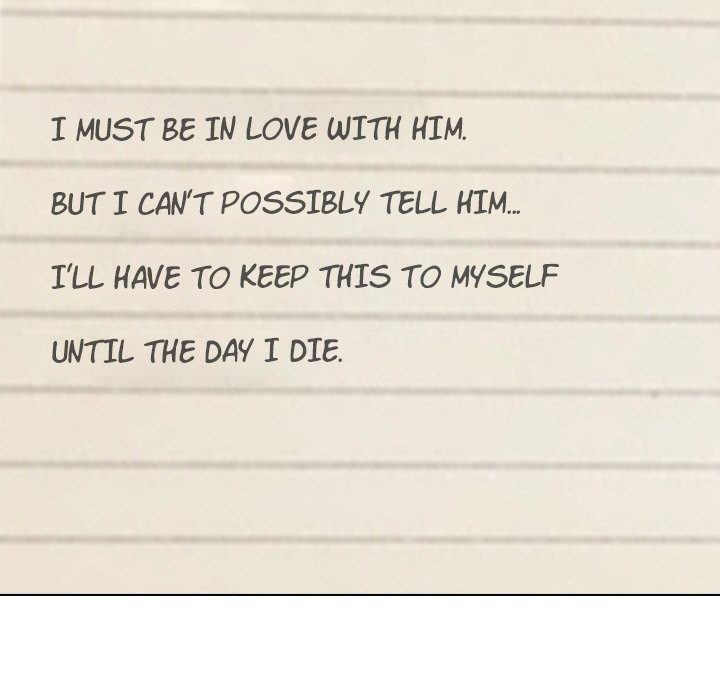 I MUST BE IN LOVE WITH HIM.
BUT I CAN'T POSSIBLY TELL HIM...
I'LL HAVE TO KEEP THIS TO MYSELF
UNTIL THE DAY I DIE.